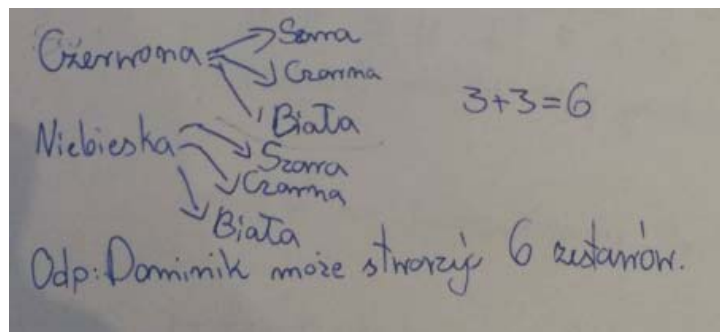 Szara
Czerwona
Czarna
3+3=6
Biała
Niebieska
Szara
Czarna
Biała
Odp: Dominik może stworzyć 6 zestawów.